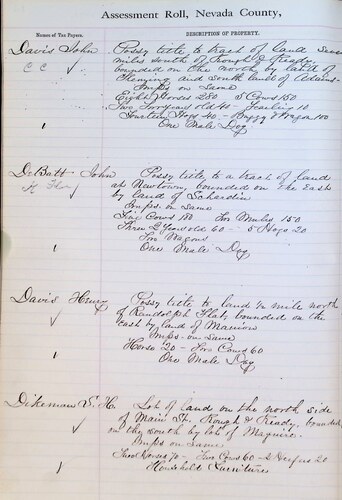 Assessment Roll, Nevada County,
Names of Tax Payers. DESCRIPTION OF PROPERTY.
Davis John Possy title, to tract of land seven
C C miles south of Rough & Ready,
bounded on the north by land of
Fleming and south land of Adams
Imps on Same
Eight Horses 280 5 Cows 150
Two Two years old 40 - Yearling 10
Fourteen Hogs 40 - Buggy & Wagon 100
1 One Male Dog
DeBatt John Possy title to a tract of land
at Newtown, bounded on the East
by land of Schardin
Imps. on Same
Six Cows 180 Two Mules 150
Three 2 Years old 60 - 5 Hogs 20
Two Wagons
1 One Male Dog
Davis Henry Possy title to land ½ mile north
of Randolph Flat, bounded on the
east by land of Manion
Imps. on Same
Horse 20 - Two Cows 60
1 One Male Dog
Dikeman S. H. Lot of land on the north side
of Main St. Rough & Ready, bounded
on the south by lot of Maguire.
Imps on Same
Two Horses 70 - Two Cows 60 - 2 Heifers 20
1 Household Furniture